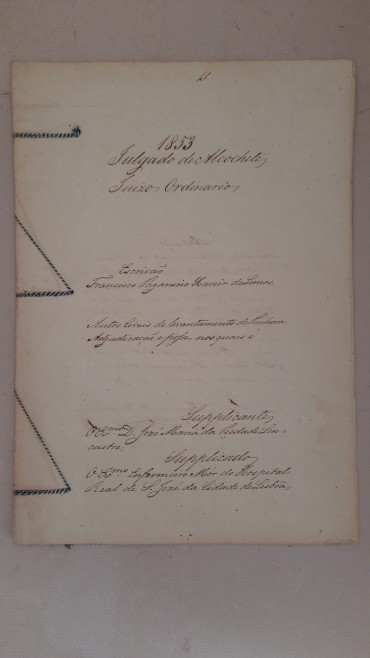 1853
Julgado de Alcochete
Juizo Ordinario
Escrivão
Francisco Xavier de Lemos
Autos Civeis de levantamento de
Adjudicação e posse, nos quaes é
Supplicante
O Exmo D. José Maria da Piedade Len
castre,
Supplicado
O Exmo Enfermeiro Mór do Hospital
Real de S. José da Cidade de Lisboa,